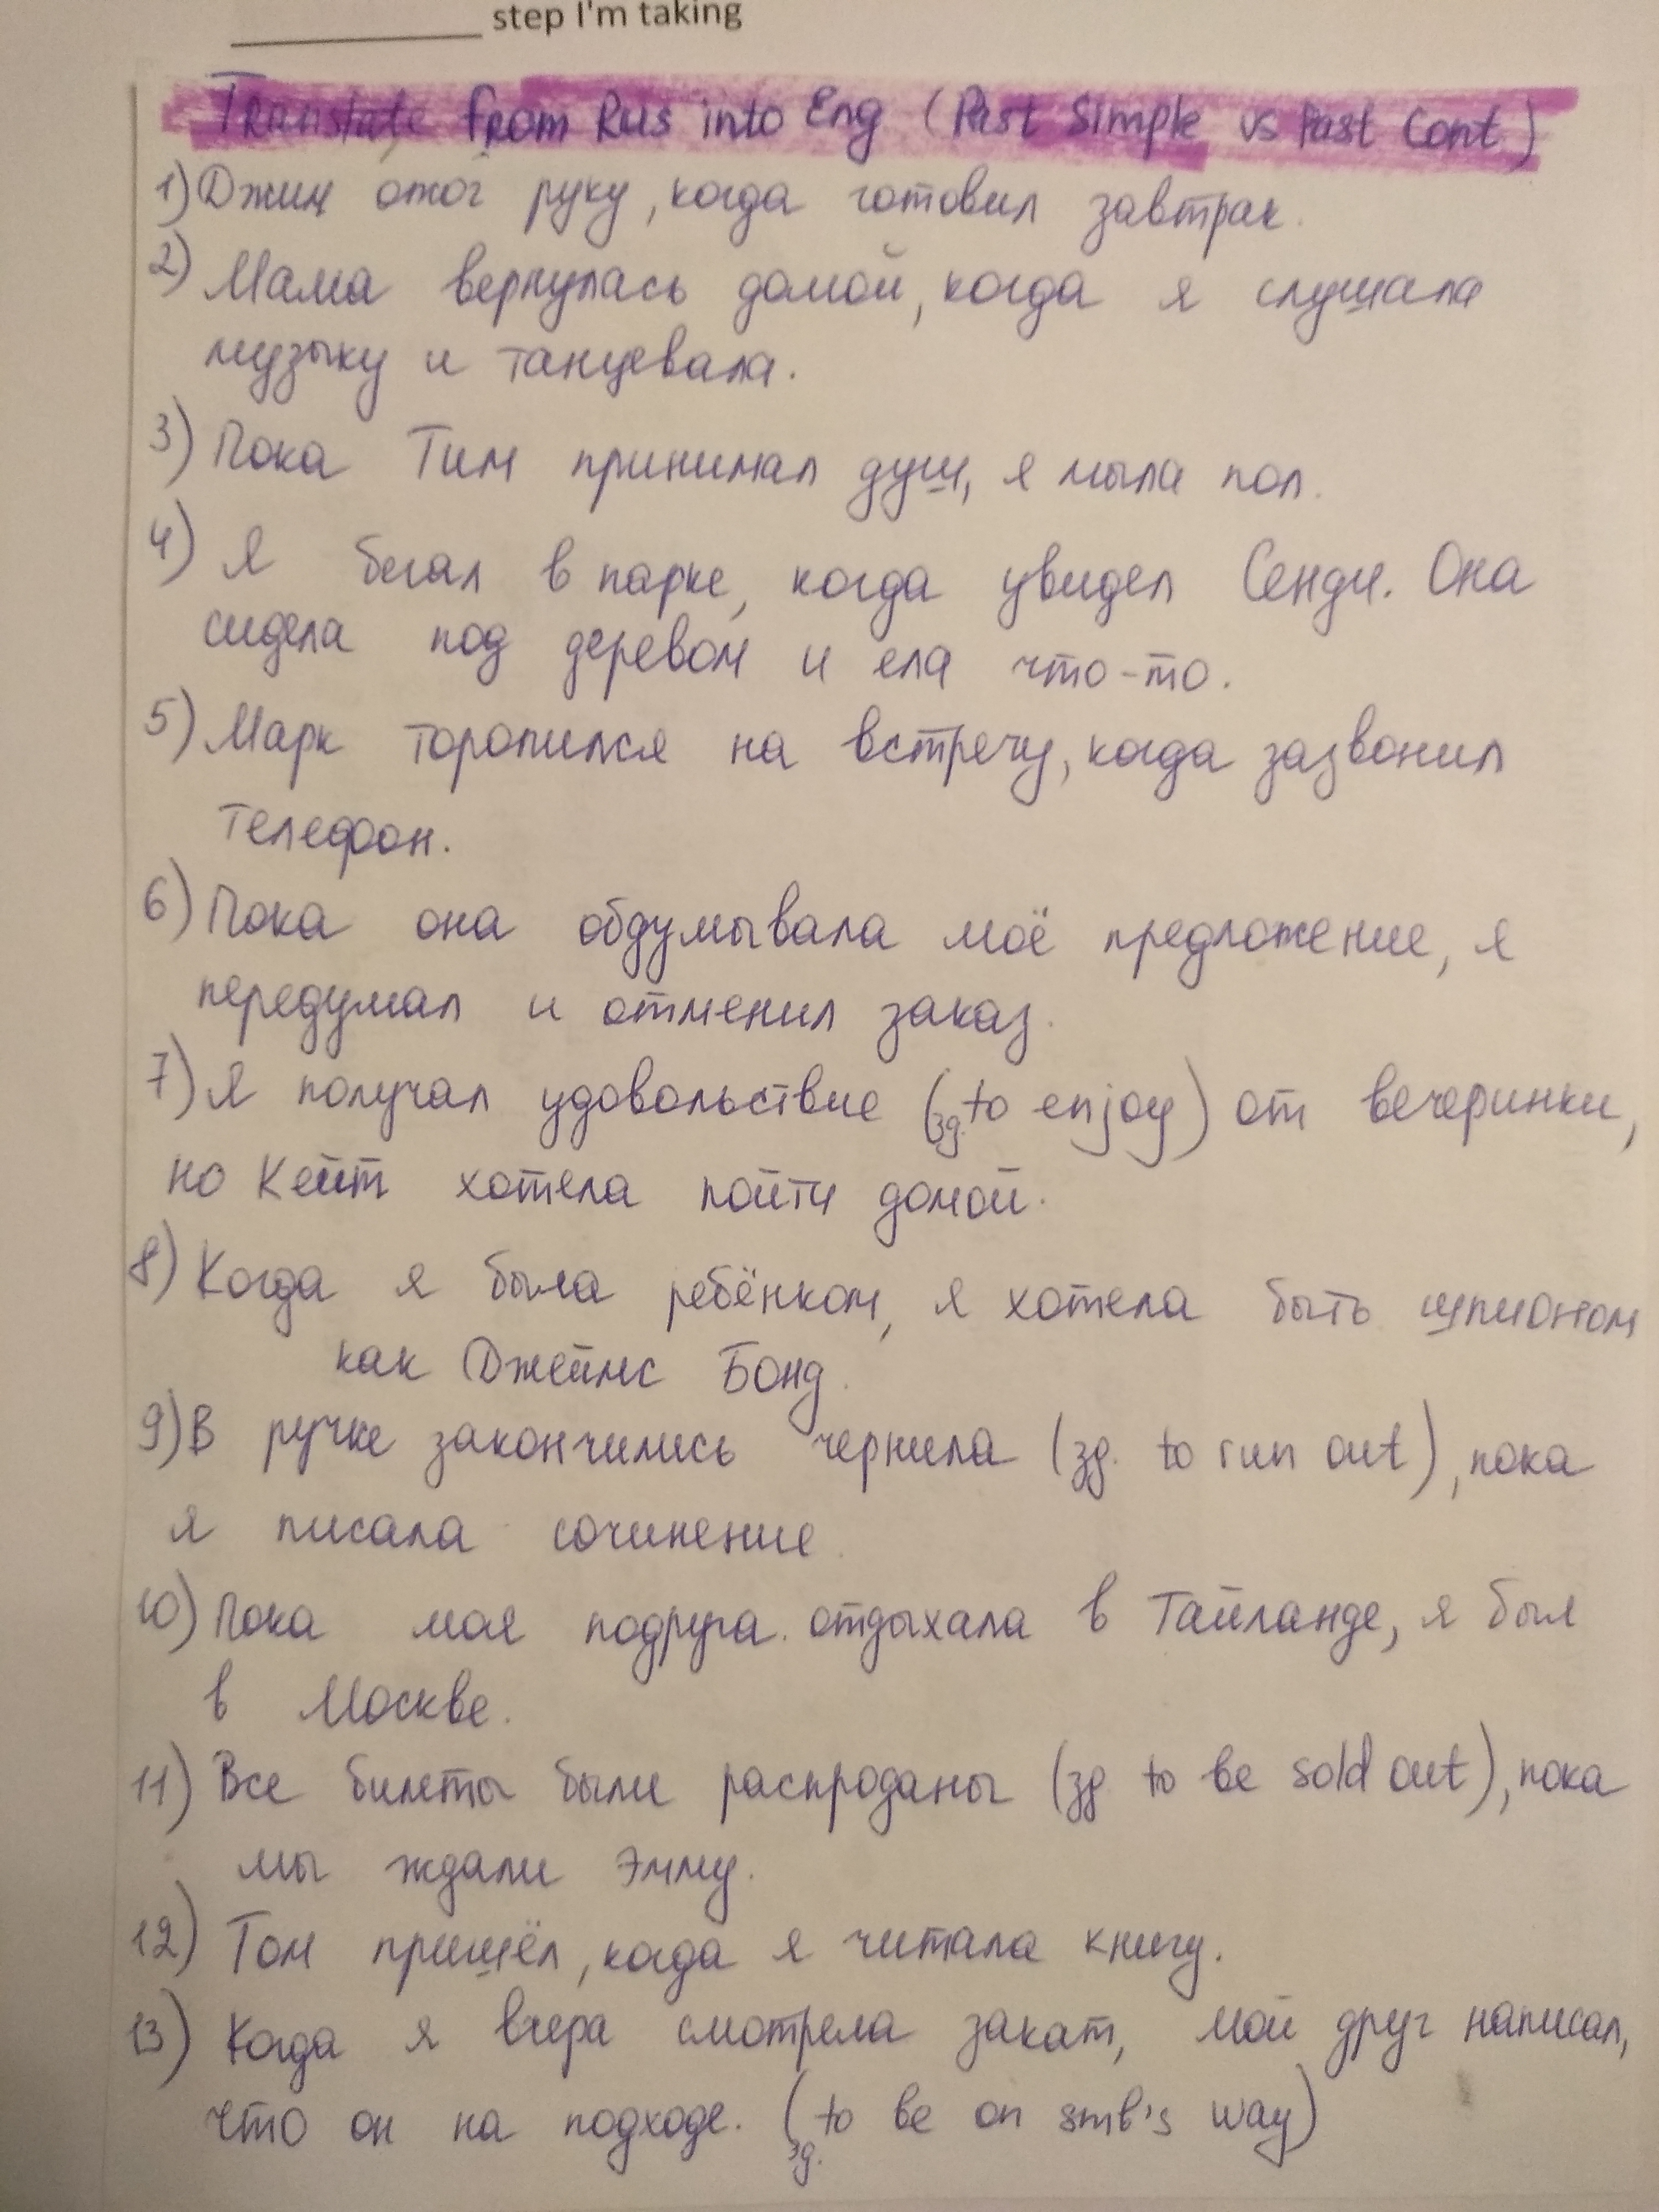 ____________ step I'm taking
Translate from Rus into Eng (Past Simple vs Past Cont)
1) Джим ожог руку, когда готовил завтрак.
2) Мама вернулась домой, когда я слушала
музыку и танцевала.
3) Пока Тим принимал душ, я мыла пол.
4) Я бегал в парке, когда увидел Сенди. Она
сидела под деревом и ела что-то.
5) Марк торопился на встречу, когда зазвонил
телефон.
6) Пока она обдумывала моё предложение, я
передумал и отменил заказ.
7) Я получал удовольствие (зд. to enjoy) от вечеринки,
но Кейт хотела пойти домой.
8) Когда я была ребёнком, я хотела быть шпионом
как Джеймс Бонд.
9) В ручке закончились чернила (зд. to run out), пока
я писала сочинение.
10) Пока моя подруга отдыхала в Тайланде, я был
в Москве.
11) Все билеты были распроданы (зд. to be sold out), пока
мы ждали Эмму.
12) Том пришёл, когда я читала книгу.
13) Когда я вчера смотрела закат, мой друг написал,
что он на подходе. (зд. to be on smb's way)